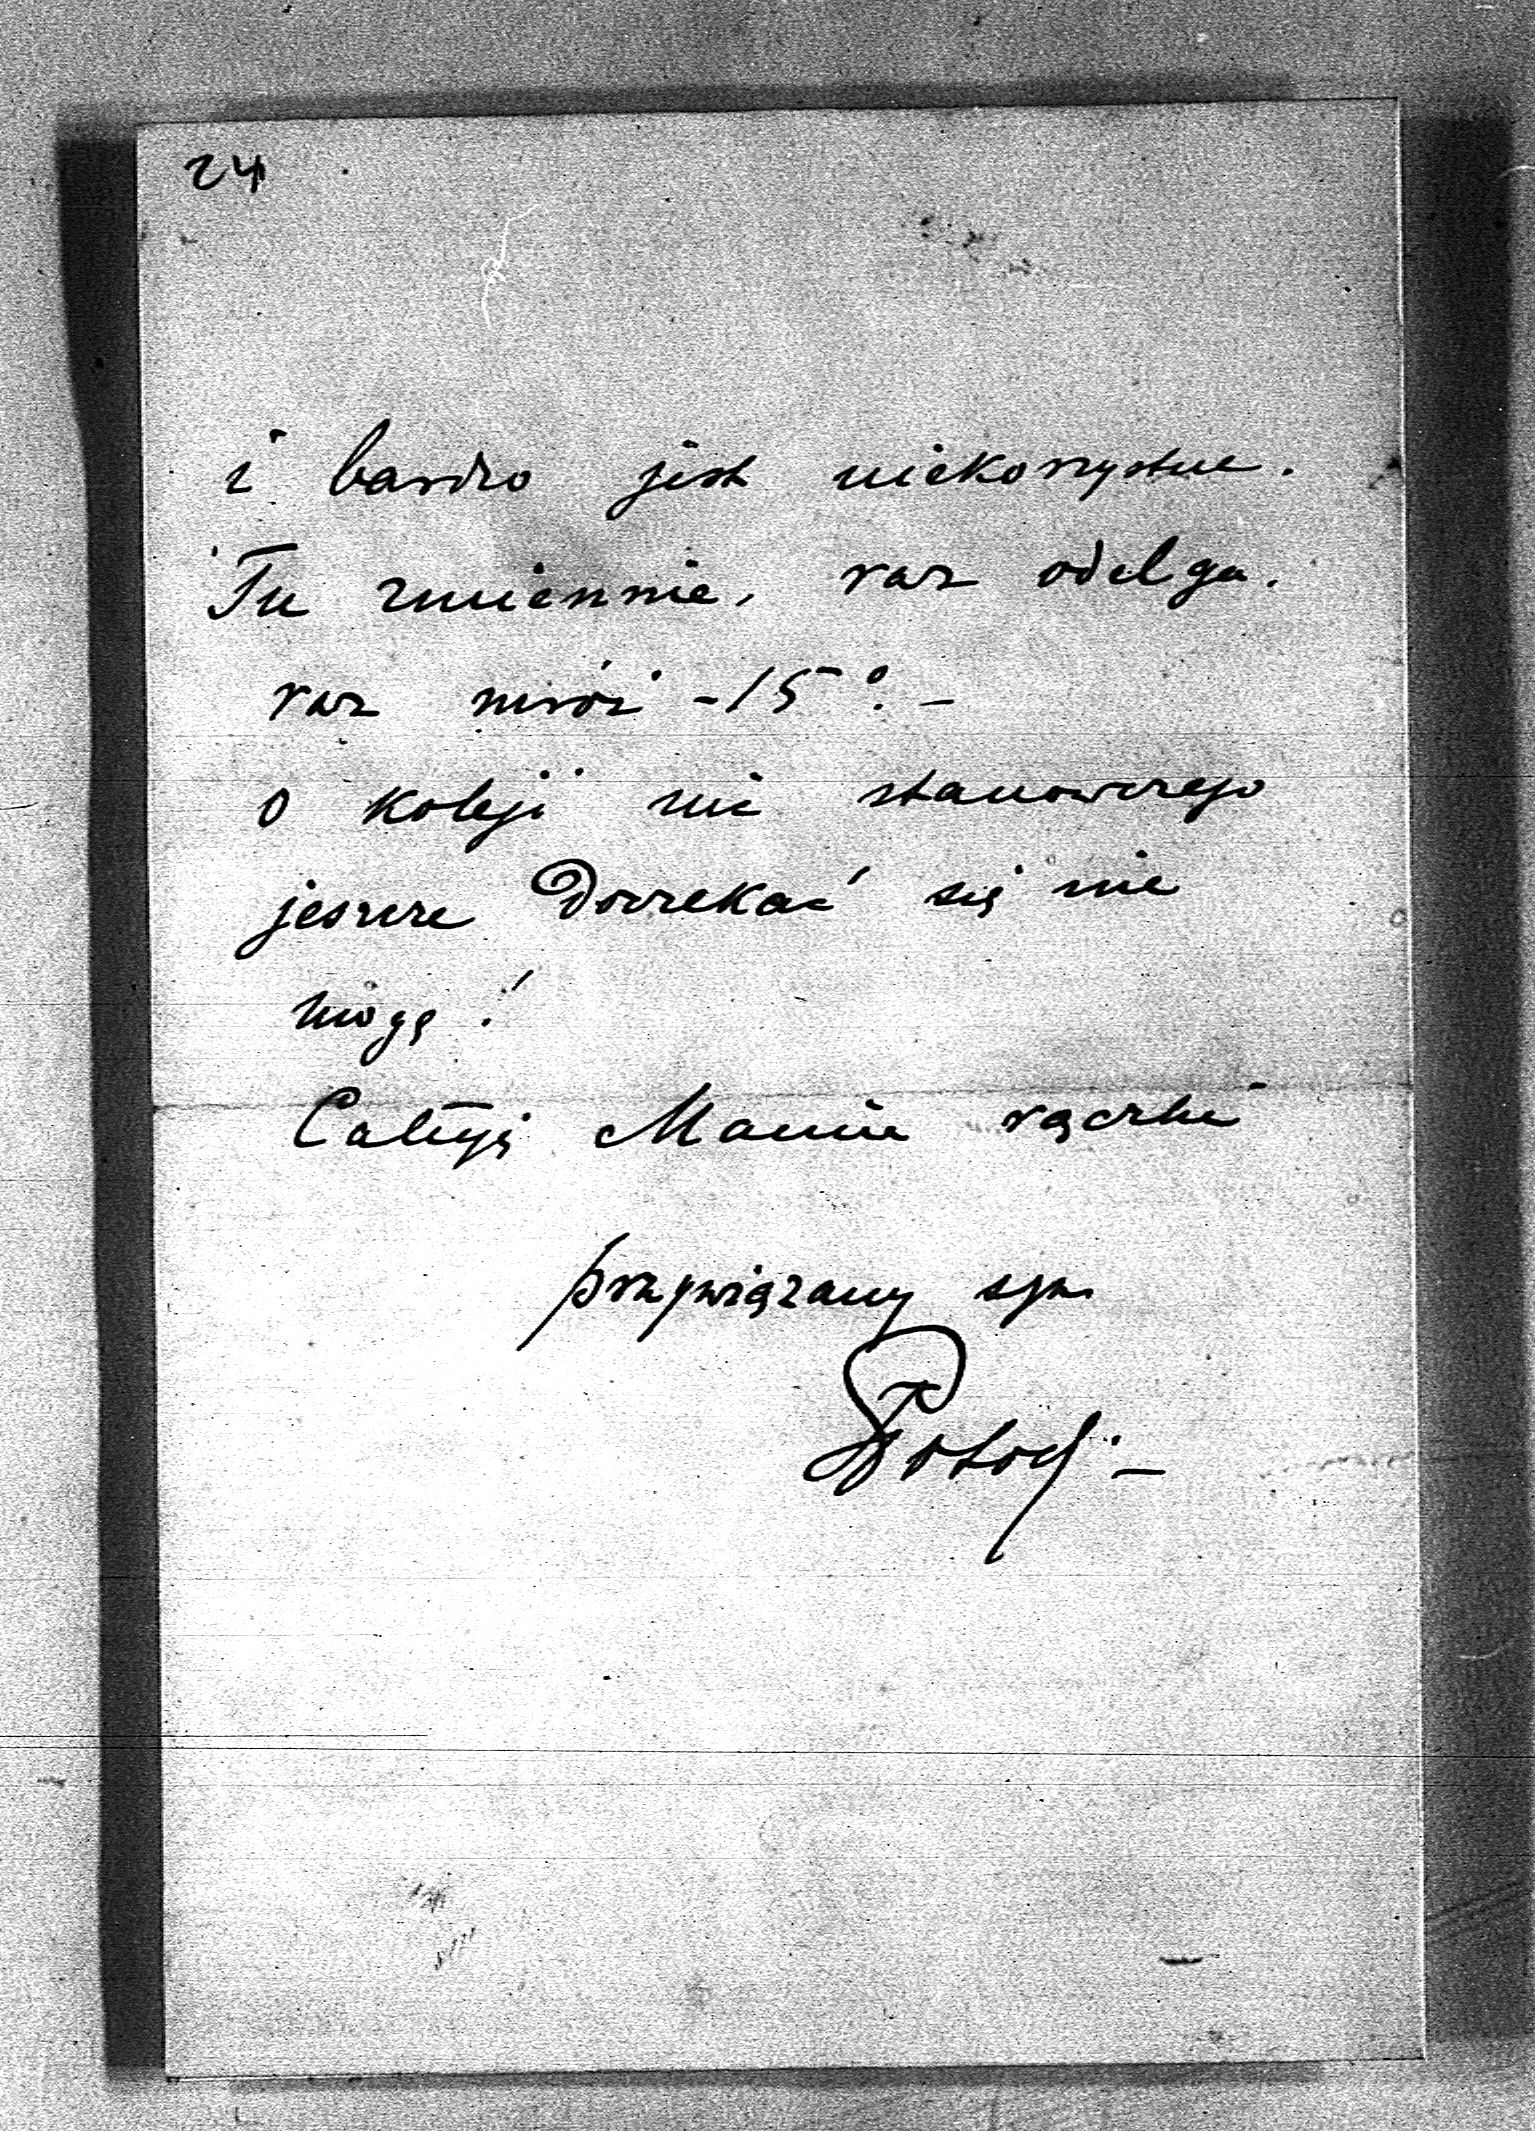 24
i bardzo jest niekorzystne.
Tu zmiennie, raz odelga.
raz mróz -15°. -
o koleji nic stanowczego
jeszcze doczekać się nie
mogę !
Całuję Mamie rączki
przywiązany syn